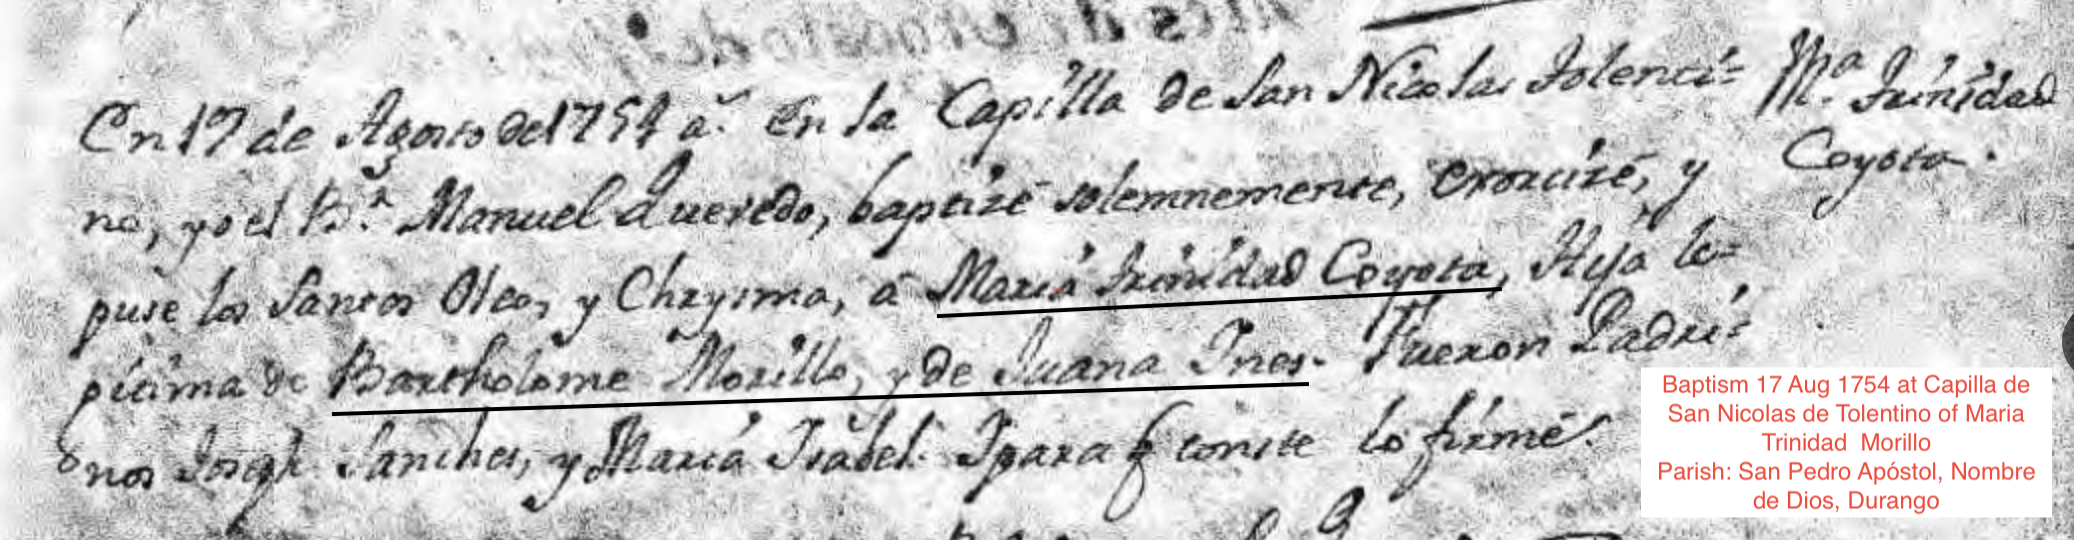 En 17 de Agosto de 1754 a.ˢ En la Capilla de San Nicolas Tolenti=
no, yo el B.ʳ Manuel Quevedo, baptizé solemnemente, exorcizé, y
puse los Santos Oleos, y Chrysma, á Maria Trinidad Coyota, Hija le=
gitima de Bartholome Morillo, y de Juana Ines. Fueron Padri=
nos Joseph Sanches, y Maria Isabel. Ypara q conste lo firmé.
Mª. Trinidad
Coyota.
Baptism 17 Aug 1754 at Capilla de
San Nicolas de Tolentino of Maria
Trinidad Morillo
Parish: San Pedro Apóstol, Nombre
de Dios, Durango